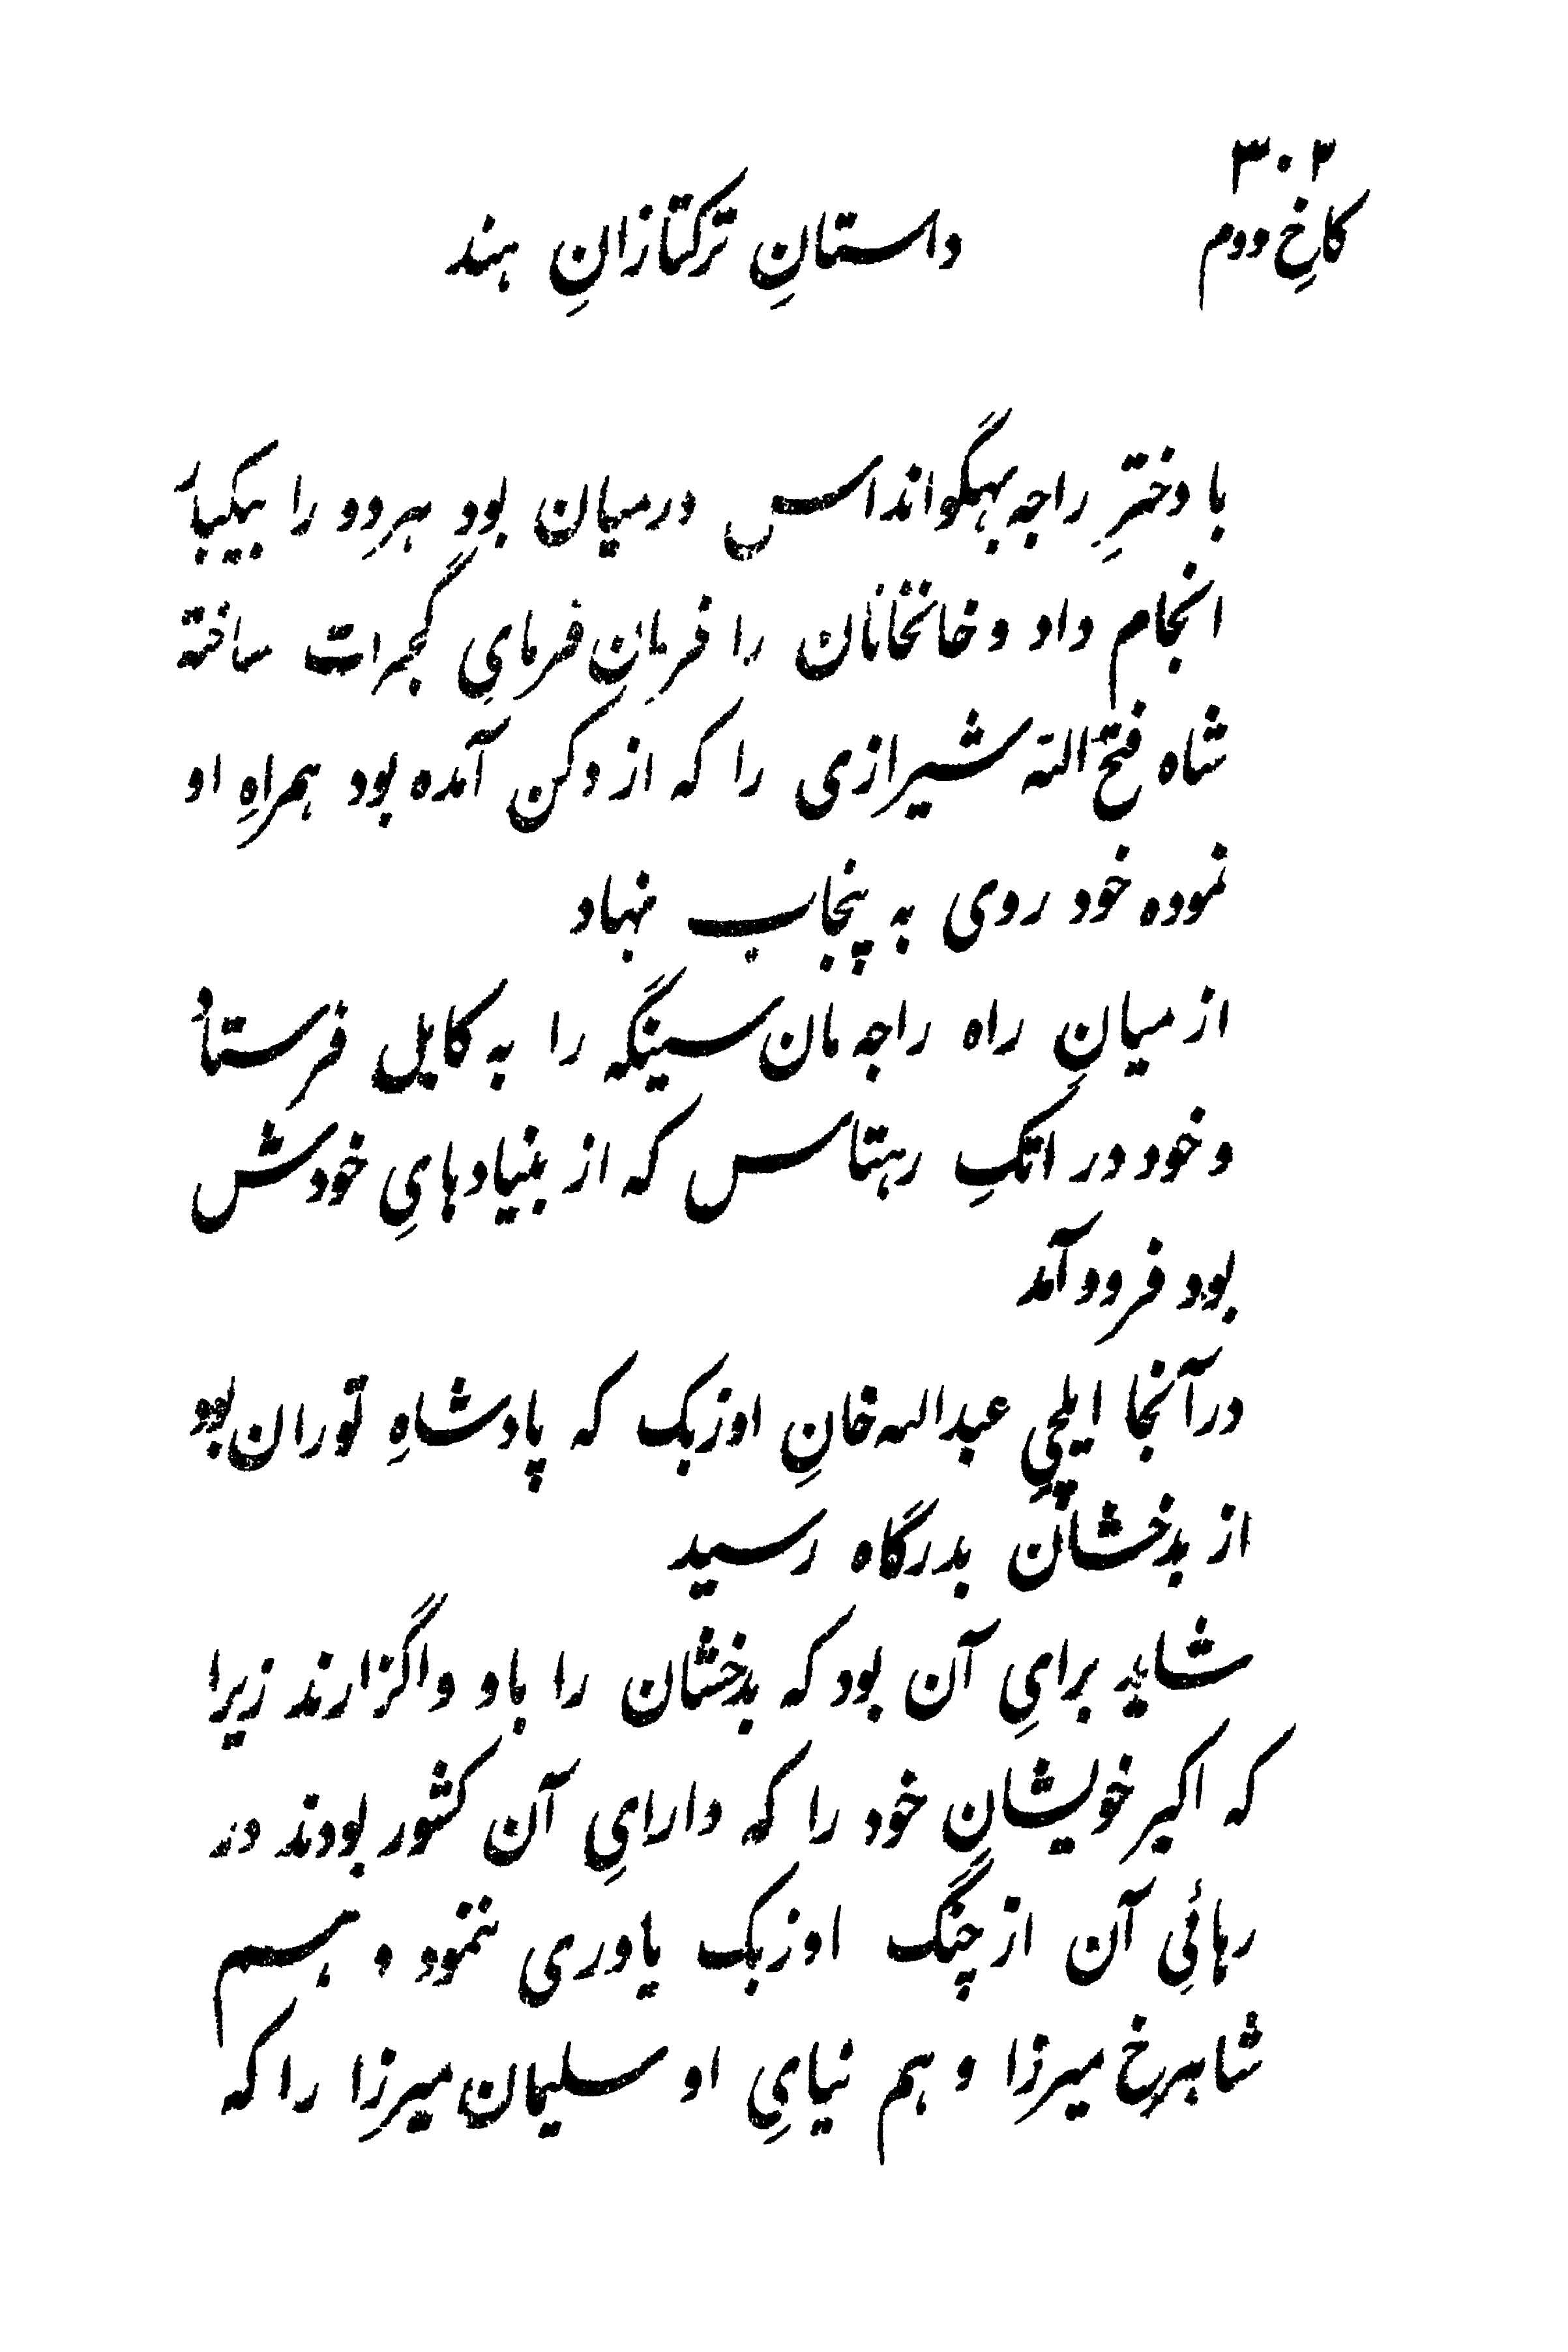 ۳۰۲
کاخِ دوم
داستانِ ترکتازانِ هند
با دخترِ راجه بهگوانداس درمیان بود هردو را بیکبار
انجام داد و خانخانان را فرمان‌فرمایِ گجرات ساخته
شاه فتح الله شیرازی را که از دکن آمده بود همراهِ او
نموده خود روی به پنجاب نهاد
از میانِ راه راجه مان سینگه را به کابل فرستاد
و خود در اتکِ رهتاس که از بنیادهایِ خودش
بود فرود آمد
در آنجا ایلچیِ عبدالله خانِ اوزبک که پادشاهِ توران بود
از بدخشان بدرگاه رسید
شاید برایِ آن بود که بدخشان را باو واگزارند زیرا
که اکبر خویشانِ خود را که دارایِ آن کشور بودند در
رهائیِ آن از چنگ اوزبک یاوری ننمود و هم
شاهرخ میرزا و هم نیایِ او سلیمان میرزا را که